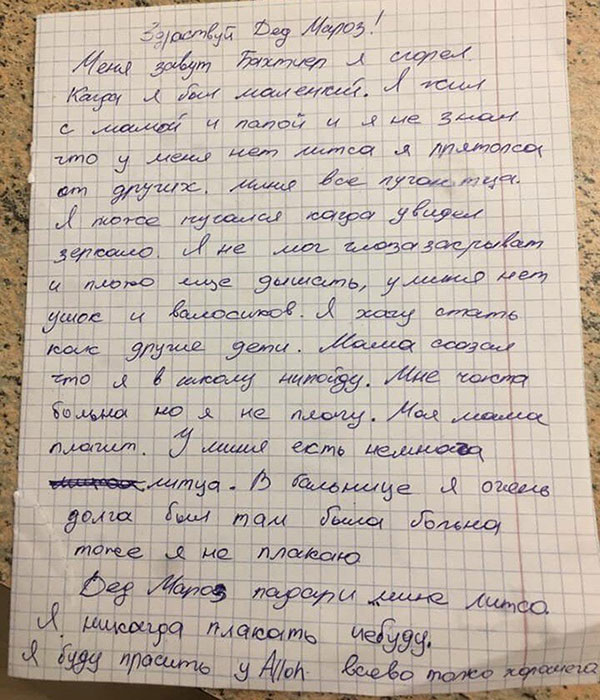 Здраствуй Дед Мароз!
Меня завут Бахтиер я сгорел.
Кагда я был маленкий. Я жил
с мамой и папой и я не знал
что у меня нет литса я прятолса
от других. миня все пугаютца.
Я тоже пугался кагда увидел
зеркало. Я не мог глоза засрыват
и плохо еще дышать, у миня нет
ушок и валосиков. Я хочу стать
как другие дети. Мама сказал
что я в школу нипойду. Мне часта
больна но я не плочу. Моя мама
плачит. У миня есть немнога
литца. В бальнице я очень
долга был там была больна
тоже я не плакаю
Дед Мароз падари мине литсо
Я никагда плакать небуду.
Я буду прасить у Alloh всево токо харошега